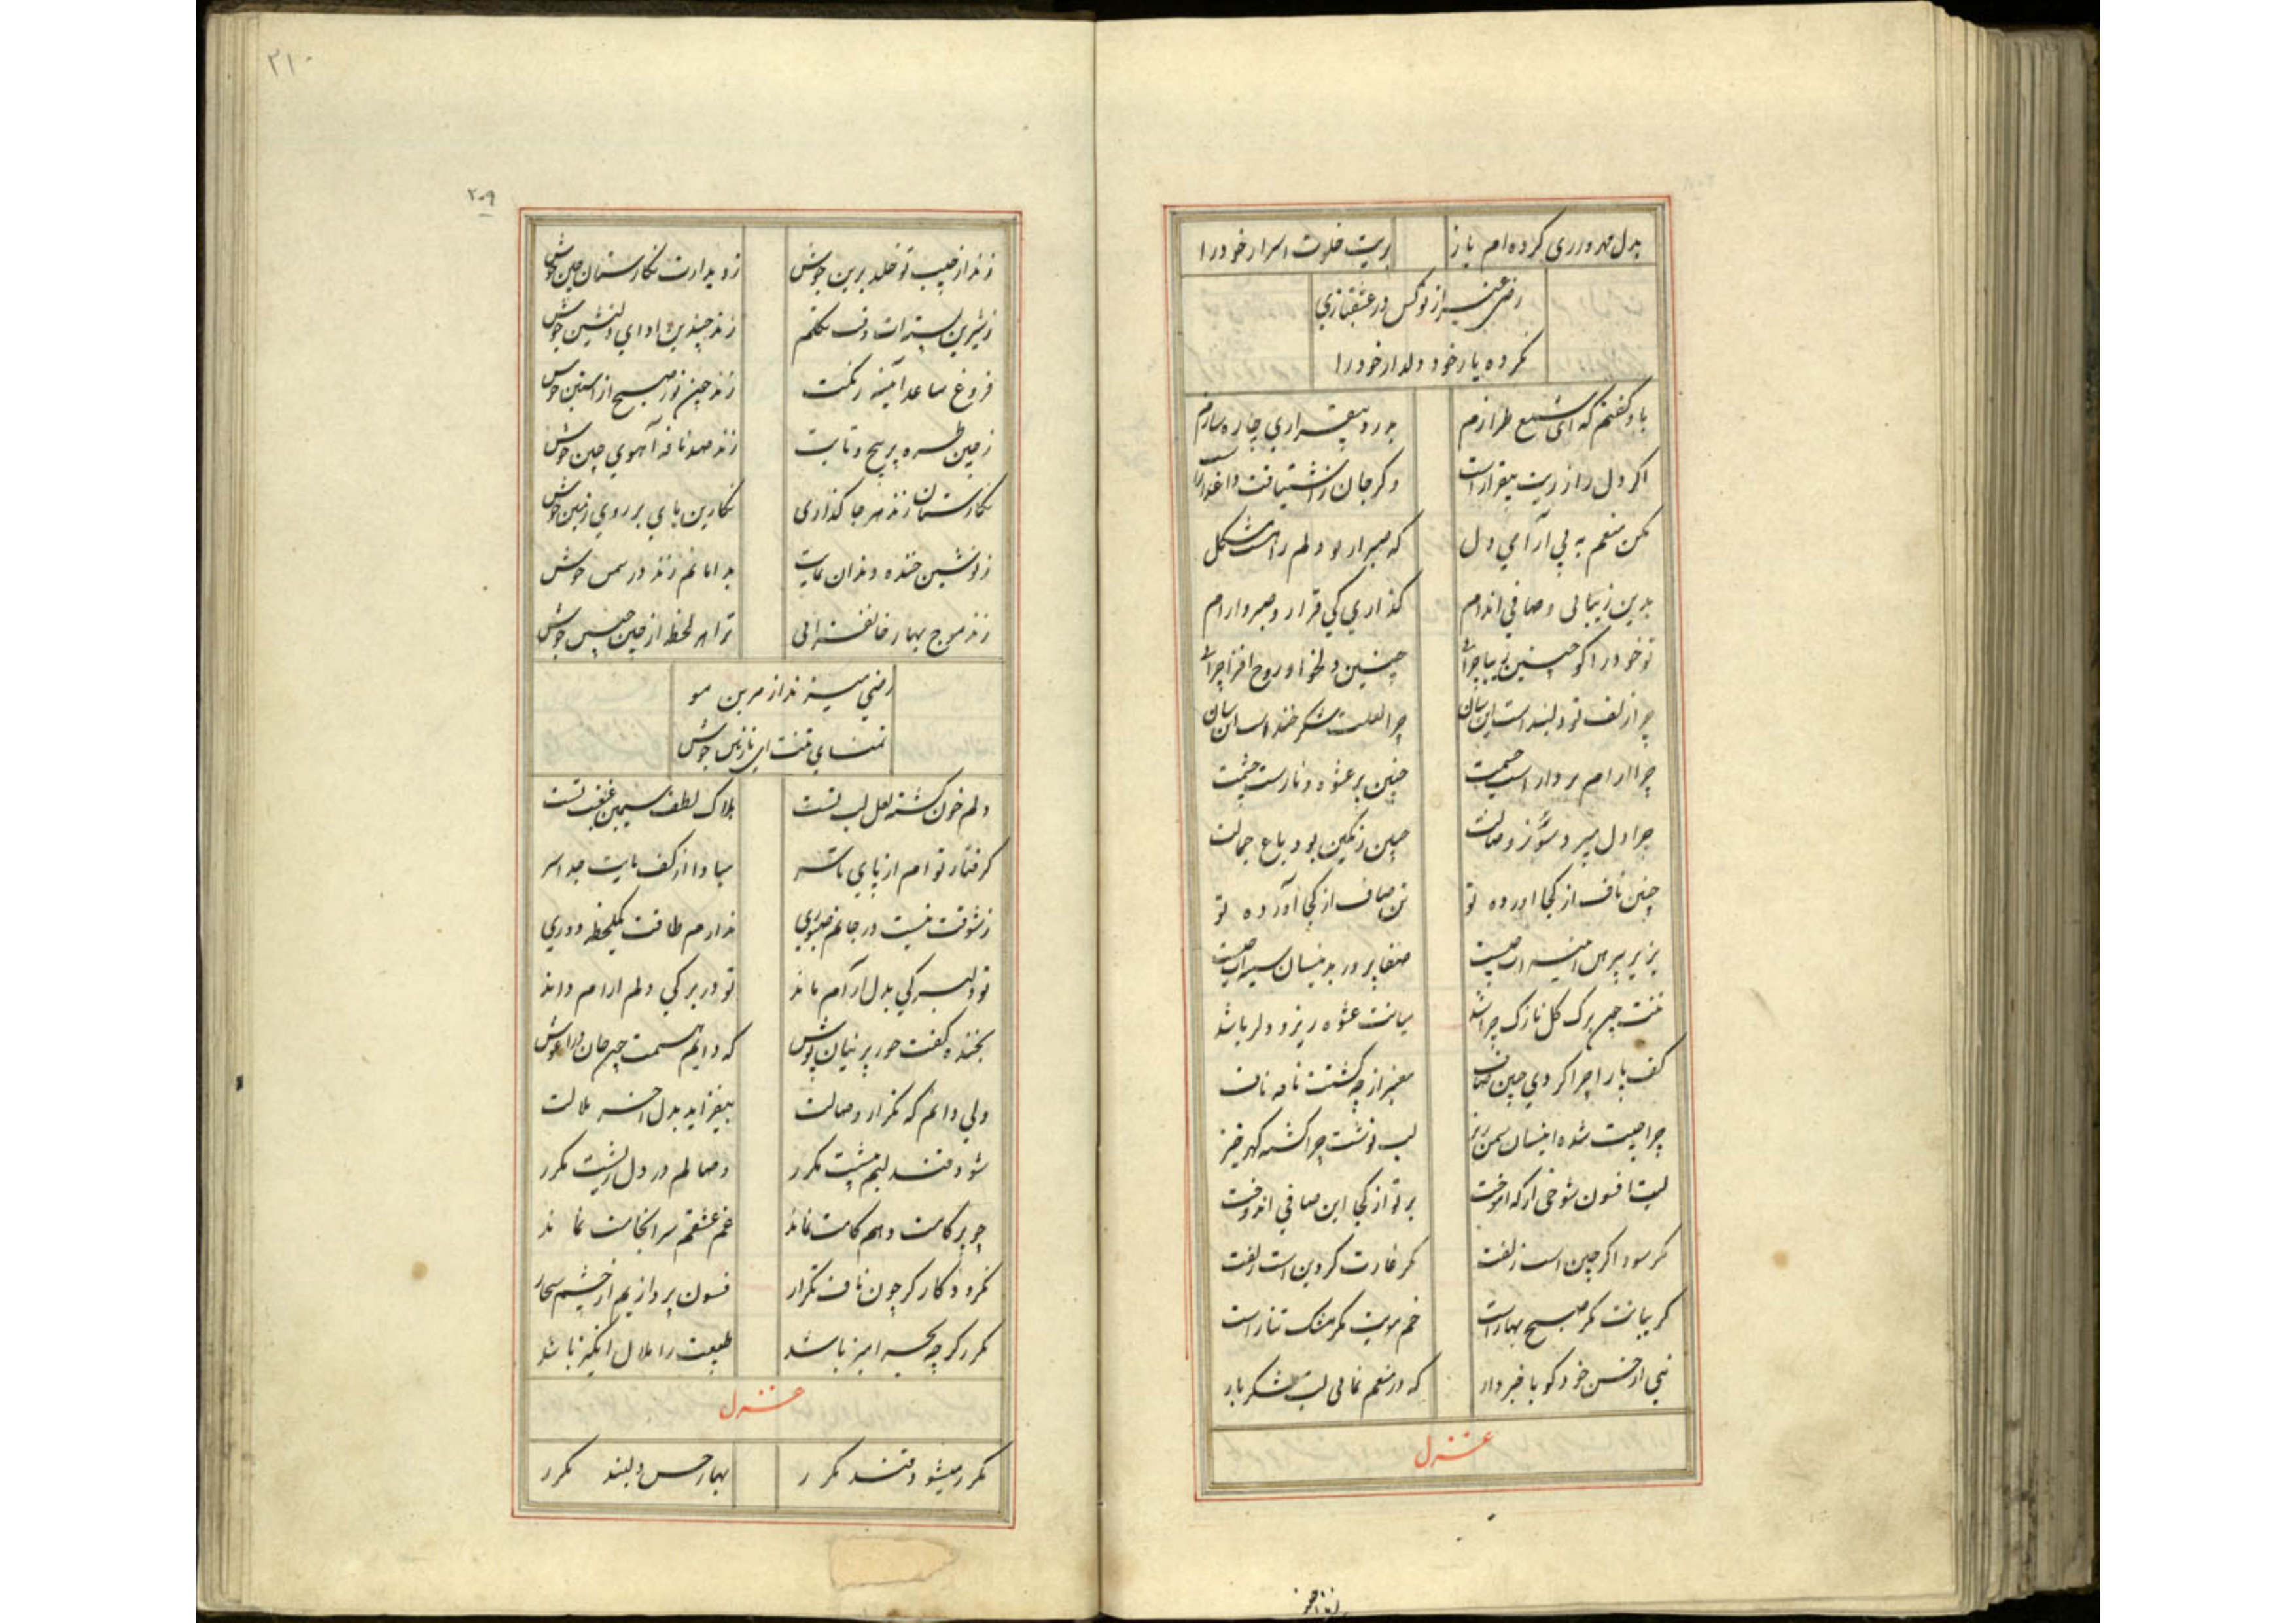 بدل مهر ورزی کرده ام باز بریت خلوت اسرار خود را
رضی غیر از تو کس در عشقبازی
نکرده یار خود دلدار خود را
باو گفتم که ای شمع طرازم بدرد بیقراری چاره سازم
اگر دل راز ریت بیقرار است وگر جان ز اشتیاقت داغدار است
مکن منعم به بی آرامی دل که صبر از تو دلم را هست مشکل
بدین زیبائی و صافی اندام گذاری کی قرار و صبر و ارام
تو خود را گو چنین زیبا چرائی چنین دلخواه و روح افزا چرائی
چرا زلف تو دلبند است اینسان چرا لعلت شکر خند است اینسان
چرا ارام بردار است چشمت چنین پر عشوه و ناز است چشمت
چرا دل میبرد شور وصالت چنین رنگین بود باغ جمالت
چنین ناف از کجا اورده تو تن صاف از کجا آورده تو
بزیر پیرهن این سیم چیست صفا پرور بدینسان سینه ات چیست
تنت چون برک گل نازک چرا شد میانت عشوه ریز و دلربا شد
کف پا را چرا کردی چنین صاف معنبر از چه گشتت نافه ناف
چرا جیبت شده اینسان سمن ریز لب نوشت چرا گشته گهر خیز
لبت افسون شوخی از که اموخت بر تو از کجا این صافی اندوخت
مگر سوداگر چین است زلفت مگر غارت گر دین است زلفت
گریبانت مگر صبح بهار است خم مویت مگر مشک تتار است
نئی از حسن خود گویا خبردار که در منعم نمائی لب شکر بار
غزل
۲۱۰
۲۰۹
زند از جیب تو خلد برین جوش ز دیدارت نگارستان چین جوش
ز شیرین پسته ات وقت تکلم زند چندین ادای دلنشین جوش
فروغ ساعد آئینه رنگت زند چون نور صبح از استین جوش
ز چین طره پر پیچ و تابت زند صد نافه آهوی چین جوش
نگارستان زند هر جا گذاری نگارین پای بر روی زمین جوش
ز نوشین خنده دندان نمایت بدامانم زند در ثمین جوش
زند موج بهار خانفزائی ترا هر لحظه از چین جبین جوش
رضی میزند از هر بن مو
تمنای تنت ای نازنین جوش
دلم خون گشته لعل لب تست هلاک لطف سیمین غبغب تست
گرفتار تو ام از پای تا سر مبادا از کف پایت جدا سر
ز شوقت نیست در جانم صبوری ندارم طاقت یکلحظه دوری
تو دلبر کی بدل آرام ماند تو در بر کی دلم ارام داند
بخنده گفت حور پرنیان پوش که دایم هستمت چون جان در اغوش
ولی دانم که تکرار وصالت بیفزاید بدل اخر ملالت
شود قند لبم پیشت مکرر وصالم در دل ریشت مکرر
چو بر کامت دهم کامت نماند غم عشقم سرانجامت نماند
نگردد کارگر چون ناف تکرار فسون پردازیم از چشم سحار
مکرر گر چه سحر امیز باشد طبیعت را ملال انگیز باشد
غزل
مکرر میشود قند مکرر بهار حسن دلبند مکرر